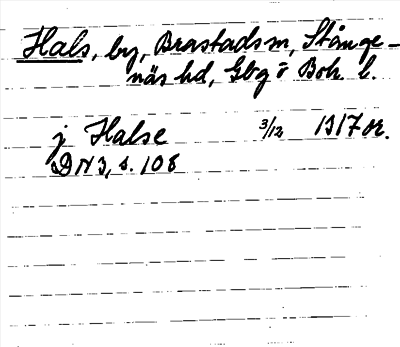 Hals, by, Brastads sn, Stånge-
näs hd, Gbg o Boh. l.
j Halse 3/12 1317 or.
DN 3, s. 108